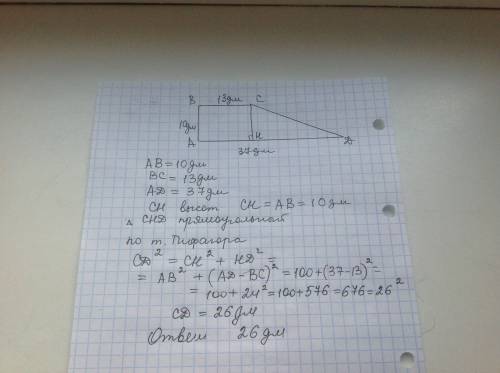 B 13дм C
10дм
A H D
37дм
AB = 10дм
BC = 13дм
AD = 37дм
CH высот CH = AB = 10дм
△ CHD прямоугольной
по т. Пифагора
CD² = CH² + HD² =
= AB² + (AD - BC)² = 100 + (37-13)² =
= 100 + 24² = 100 + 576 = 676 = 26²
CD = 26дм
Ответ 26дм